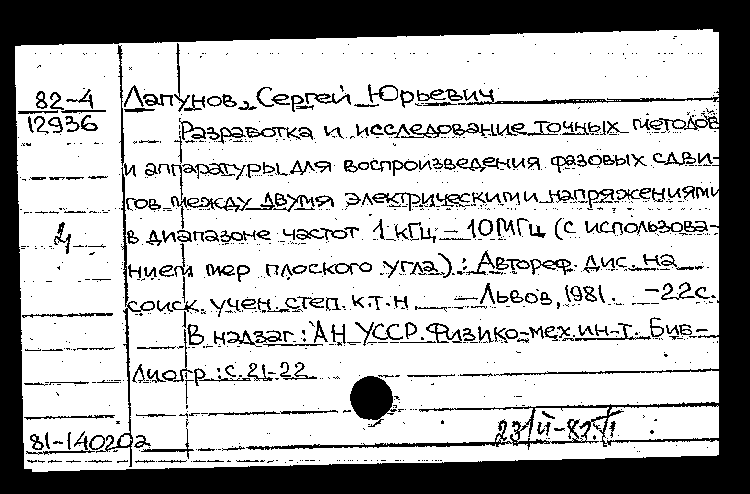 82-4
12936
Лапунов, Сергей Юрьевич
Разработка и исследование точных методов
и аппаратуры для воспроизведения фазовых сдви-
гов между двумя электрическими напряжениями
в диапазоне частот 1 кГц – 10МГц (с использова-
нием мер плоского угла): Автореф. дис. на
соиск. учен. степ. к.т.н – Львов, 1981. – 22с.
В надзаг: АН УССР. Физико-мех. ин-т. Биб-
лиогр: с. 21-22
81-140202